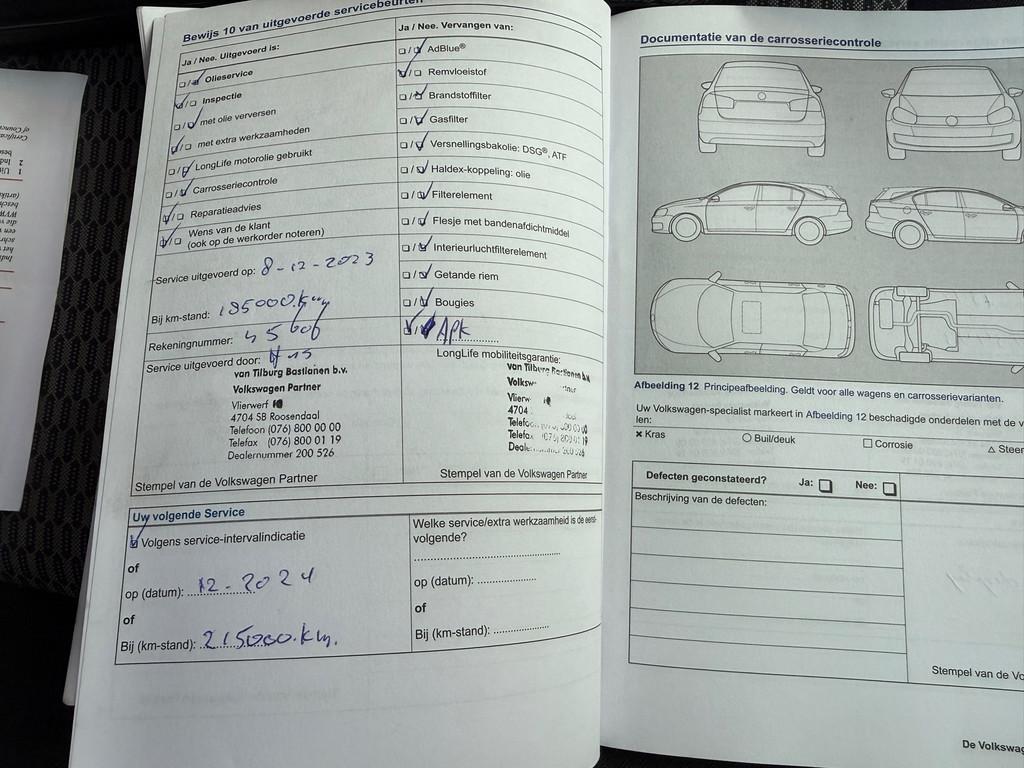 Bewijs 10 van uitgevoerde servicebeurten
Ja / Nee. Uitgevoerd is:
Olieservice
Inspectie
met olie verversen
met extra werkzaamheden
LongLife motorolie gebruikt
Carrosseriecontrole
Reparatieadvies
Wens van de klant
(ook op de werkorder noteren)
Service uitgevoerd op: 8-12-2023
Bij km-stand: 185000.km
Rekeningnummer: 45606
Service uitgevoerd door:
van Tilburg Bastianen b.v.
Volkswagen Partner
Vlierwerf
4704 SB Roosendaal
Telefoon (076) 800 00 00
Telefax (076) 800 01 19
Dealernummer 200 526
Stempel van de Volkswagen Partner
Ja / Nee. Vervangen van:
AdBlue®
Remvloeistof
Brandstoffilter
Gasfilter
Versnellingsbakolie: DSG®, ATF
Haldex-koppeling: olie
Filterelement
Flesje met bandenafdichtmiddel
Interieurluchtfilterelement
Getande riem
Bougies
Apk
LongLife mobiliteitsgarantie:
van Tilburg Bastianen b.v.
4704
Stempel van de Volkswagen Partner
Uw volgende Service
Volgens service-intervalindicatie
of
op (datum): 12-2024
of
Bij (km-stand): 215000.km.
Welke service/extra werkzaamheid is de eerst-
volgende?
op (datum):
of
Bij (km-stand):
Documentatie van de carrosseriecontrole
Afbeelding 12 Principeafbeelding. Geldt voor alle wagens en carrosserievarianten.
Uw Volkswagen-specialist markeert in Afbeelding 12 beschadigde onderdelen met de v
len:
× Kras ○ Buil/deuk □ Corrosie △ Steen
Defecten geconstateerd? Ja: Nee:
Beschrijving van de defecten:
Stempel van de Vo
De Volkswag